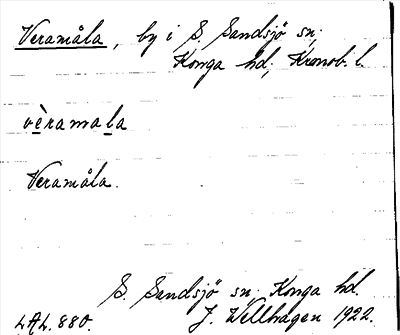 Veramåla, by i S. Sandsjö sn;
Konga hd; Kronob. l.
vèramala
Veramåla.
S. Sandsjö sn; Konga hd.
LAL. 880. J. Wellhagen 1922.